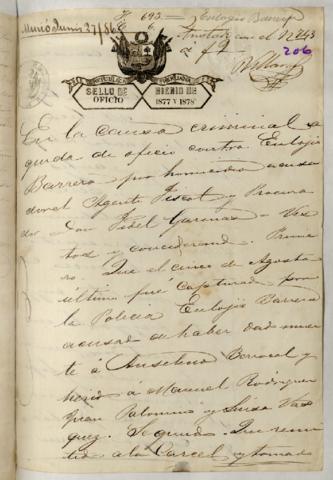 F 693 = Eulogio Barrera
Murió Junio 27/86
Anotada con el N 243
a f 9
206
REPUBLICA PERUANA
SELLO DE OFICIO
BIENIO DE 1877 Y 1878
En la causa criminal se
guida de oficio contra Eulogio
Barrera por homicidio acusa
dor el Agente Fiscal y Procura
dor Don Fidel = Vis
tos y considerando. Prime
ro. Que el cinco de Agosto
último fué capturado por
la Policia Eulogio Barrera
acusado de haber dado muer
te á Anselmo Berrocal y
herido á Manuel Rodriguez
Juan Palomino y Luisa Vas
quez. Segundo. Que remi
tido a la Carcel y tomado